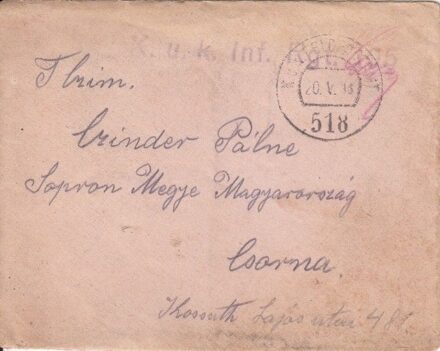 K. u. k. Inf. Rgt.
20. V. 18
518
Thzim.
Czinder Pálne
Sopron Megye Magyarország
Csorna.
Kossuth Lajos utca 481.